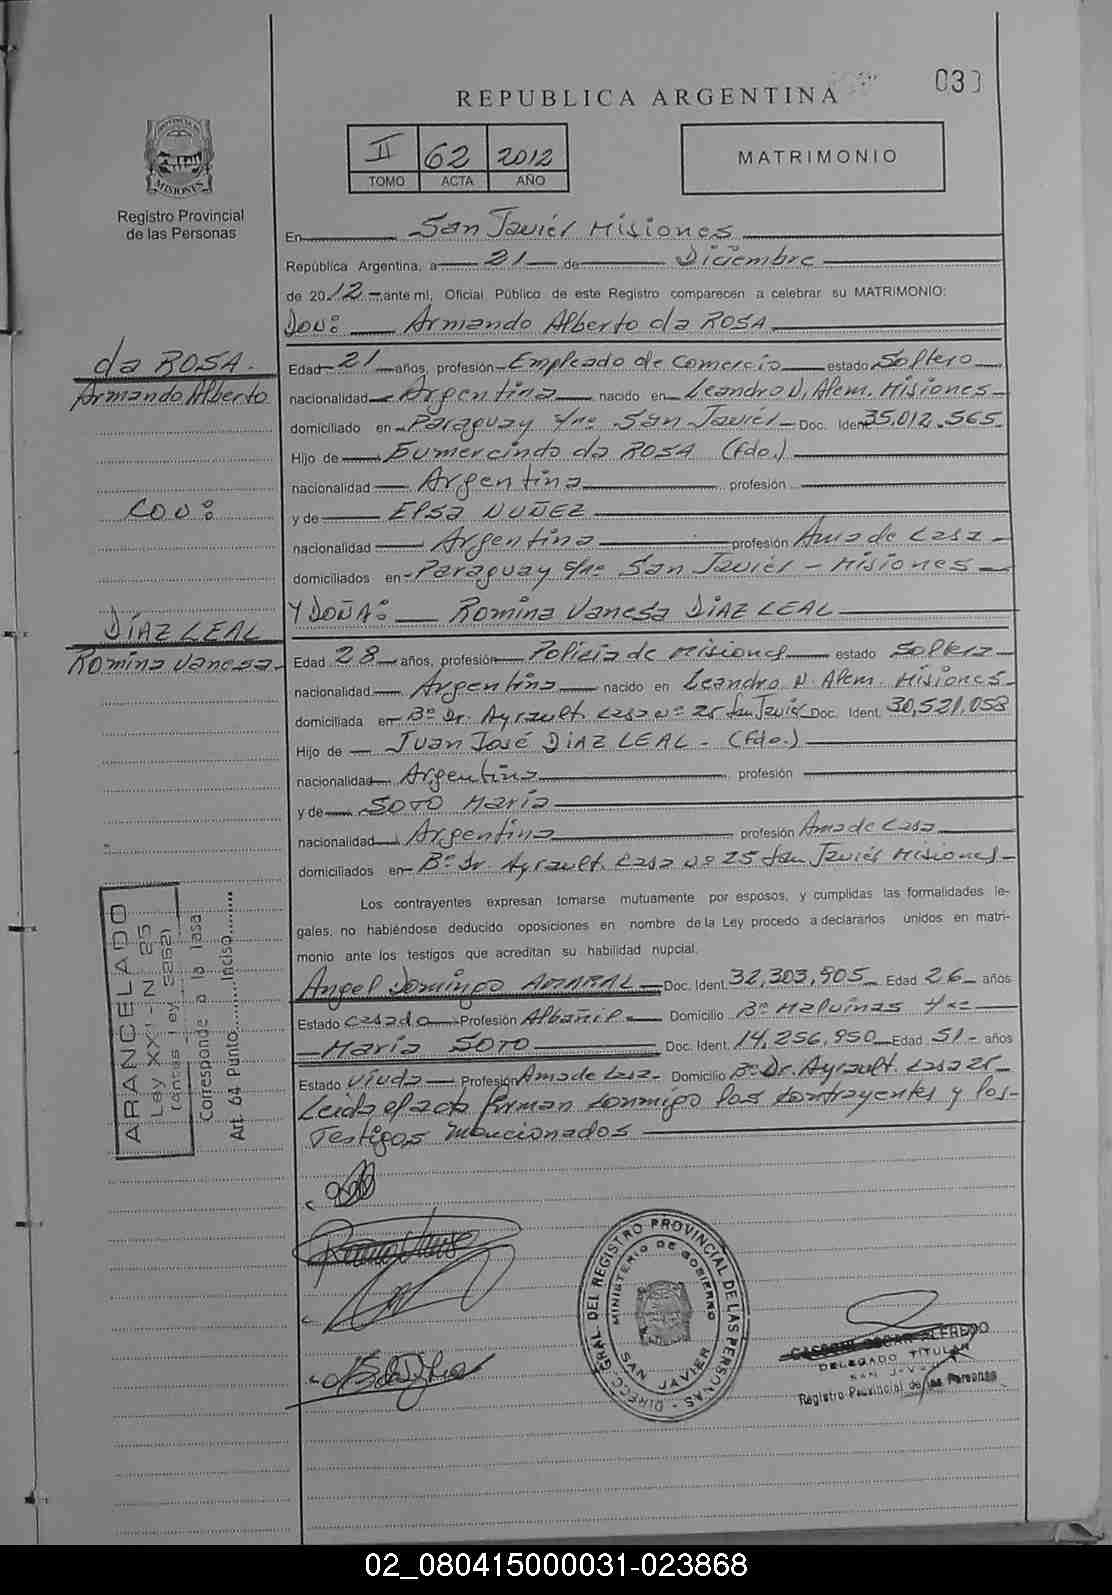 033
REPUBLICA ARGENTINA
II 62 2012
TOMO ACTA AÑO
MATRIMONIO
PROVINCIA DE
MISIONES
Registro Provincial
de las Personas
En San Javiér Misiones
República Argentina, a 21 de Diciembre
de 2012 ante mi, Oficial Público de este Registro comparecen a celebrar su MATRIMONIO:
DON: Armando Alberto da ROSA
da ROSA.
Armando Alberto
CON:
DÍAZ LEAL
Romina Vanesa
Edad 21 años, profesión Empleado de Comercio estado Soltero
nacionalidad Argentina nacido en Leandro N. Alem. Misiones
domiciliado en Paraguay s/nº San Javiér Doc. Ident 35.012.565
Hijo de Gumercindo da ROSA (fdo.)
nacionalidad Argentina profesión
y de Elsa NUÑEZ
nacionalidad Argentina profesión Ama de Casa
domiciliados en Paraguay s/nº San Javiér - Misiones
Y DOÑA: Romina Vanesa DIAZ LEAL
Edad 28 años, profesión Policía de Misiones estado Soltera
nacionalidad Argentina nacido en Leandro N. Alem. Misiones
domiciliada en Bº Dr. Ayrault. Casa nº 25 San Javiér Doc. Ident. 30,521,058
Hijo de Juan José DIAZ LEAL - (fdo.)
nacionalidad Argentina profesión
y de SOTO María
nacionalidad Argentina profesión Ama de Casa
domiciliados en Bº Dr. Ayrault. Casa nº 25 San Javiér Misiones
Los contrayentes expresan tomarse mutuamente por esposos, y cumplidas las formalidades le-
gales, no habiéndose deducido oposiciones en nombre de la Ley procedo a declararlos unidos en matri-
monio ante los testigos que acreditan su habilidad nupcial.
Angel Domingo AMARAL Doc. Ident. 32,303,905 Edad 26 años
Estado Casado Profesión Albañil Domicilio Bº Malvinas
María SOTO Doc. Ident. 14,256,950 Edad 51 años
Estado Viuda Profesión Ama de Casa Domicilio Bº Dr. Ayrault. Casa 25
Leida el acta firman conmigo los contrayentes y los
Testigos mencionados
ARANCELADO
Ley XXI - N 25
(antes ley 5262)
Corresponde a la Tasa
Art. 64 Punto........Inciso........
DIRECC. GRAL DEL REGISTRO PROVINCIAL DE LAS PERSONAS
MINISTERIO DE GOBIERNO
SAN JAVIER
OSCAR ALFREDO
DELEGADO TITULAR
SAN JAVIER
Registro Provincial de las Personas
02_080415000031-023868